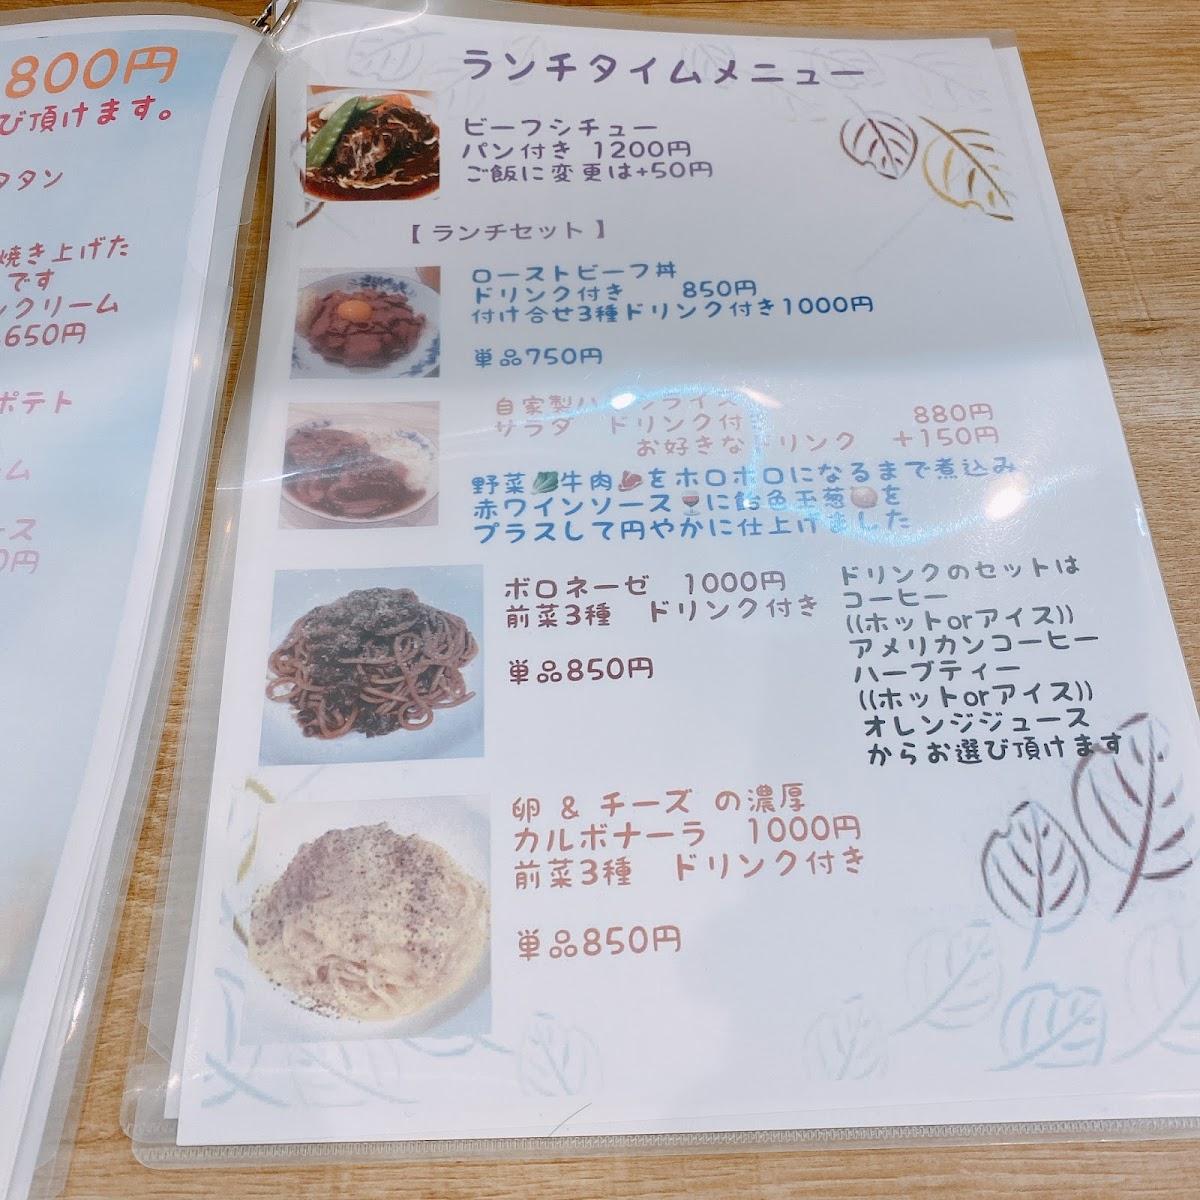 800円
び頂けます。
タタン
焼き上げた
です
ンクリーム
650円
ポテト
ーム
ース
0円
ランチタイムメニュー
ビーフシチュー
パン付き 1200円
ご飯に変更は+50円
【 ランチセット 】
ローストビーフ丼
ドリンク付き 850円
付け合せ3種ドリンク付き1000円
単品750円
自家製ハ
サラダ ドリンク付き 880円
お好きなドリンク +150円
野菜🥬牛肉🥩をホロホロになるまで煮込み
赤ワインソース🍷に飴色玉葱🧅を
プラスして円やかに仕上げました
ボロネーゼ 1000円
前菜3種 ドリンク付き
単品850円
ドリンクのセットは
コーヒー
((ホットorアイス))
アメリカンコーヒー
ハーブティー
((ホットorアイス))
オレンジジュース
からお選び頂けます
卵 & チーズ の濃厚
カルボナーラ 1000円
前菜3種 ドリンク付き
単品850円